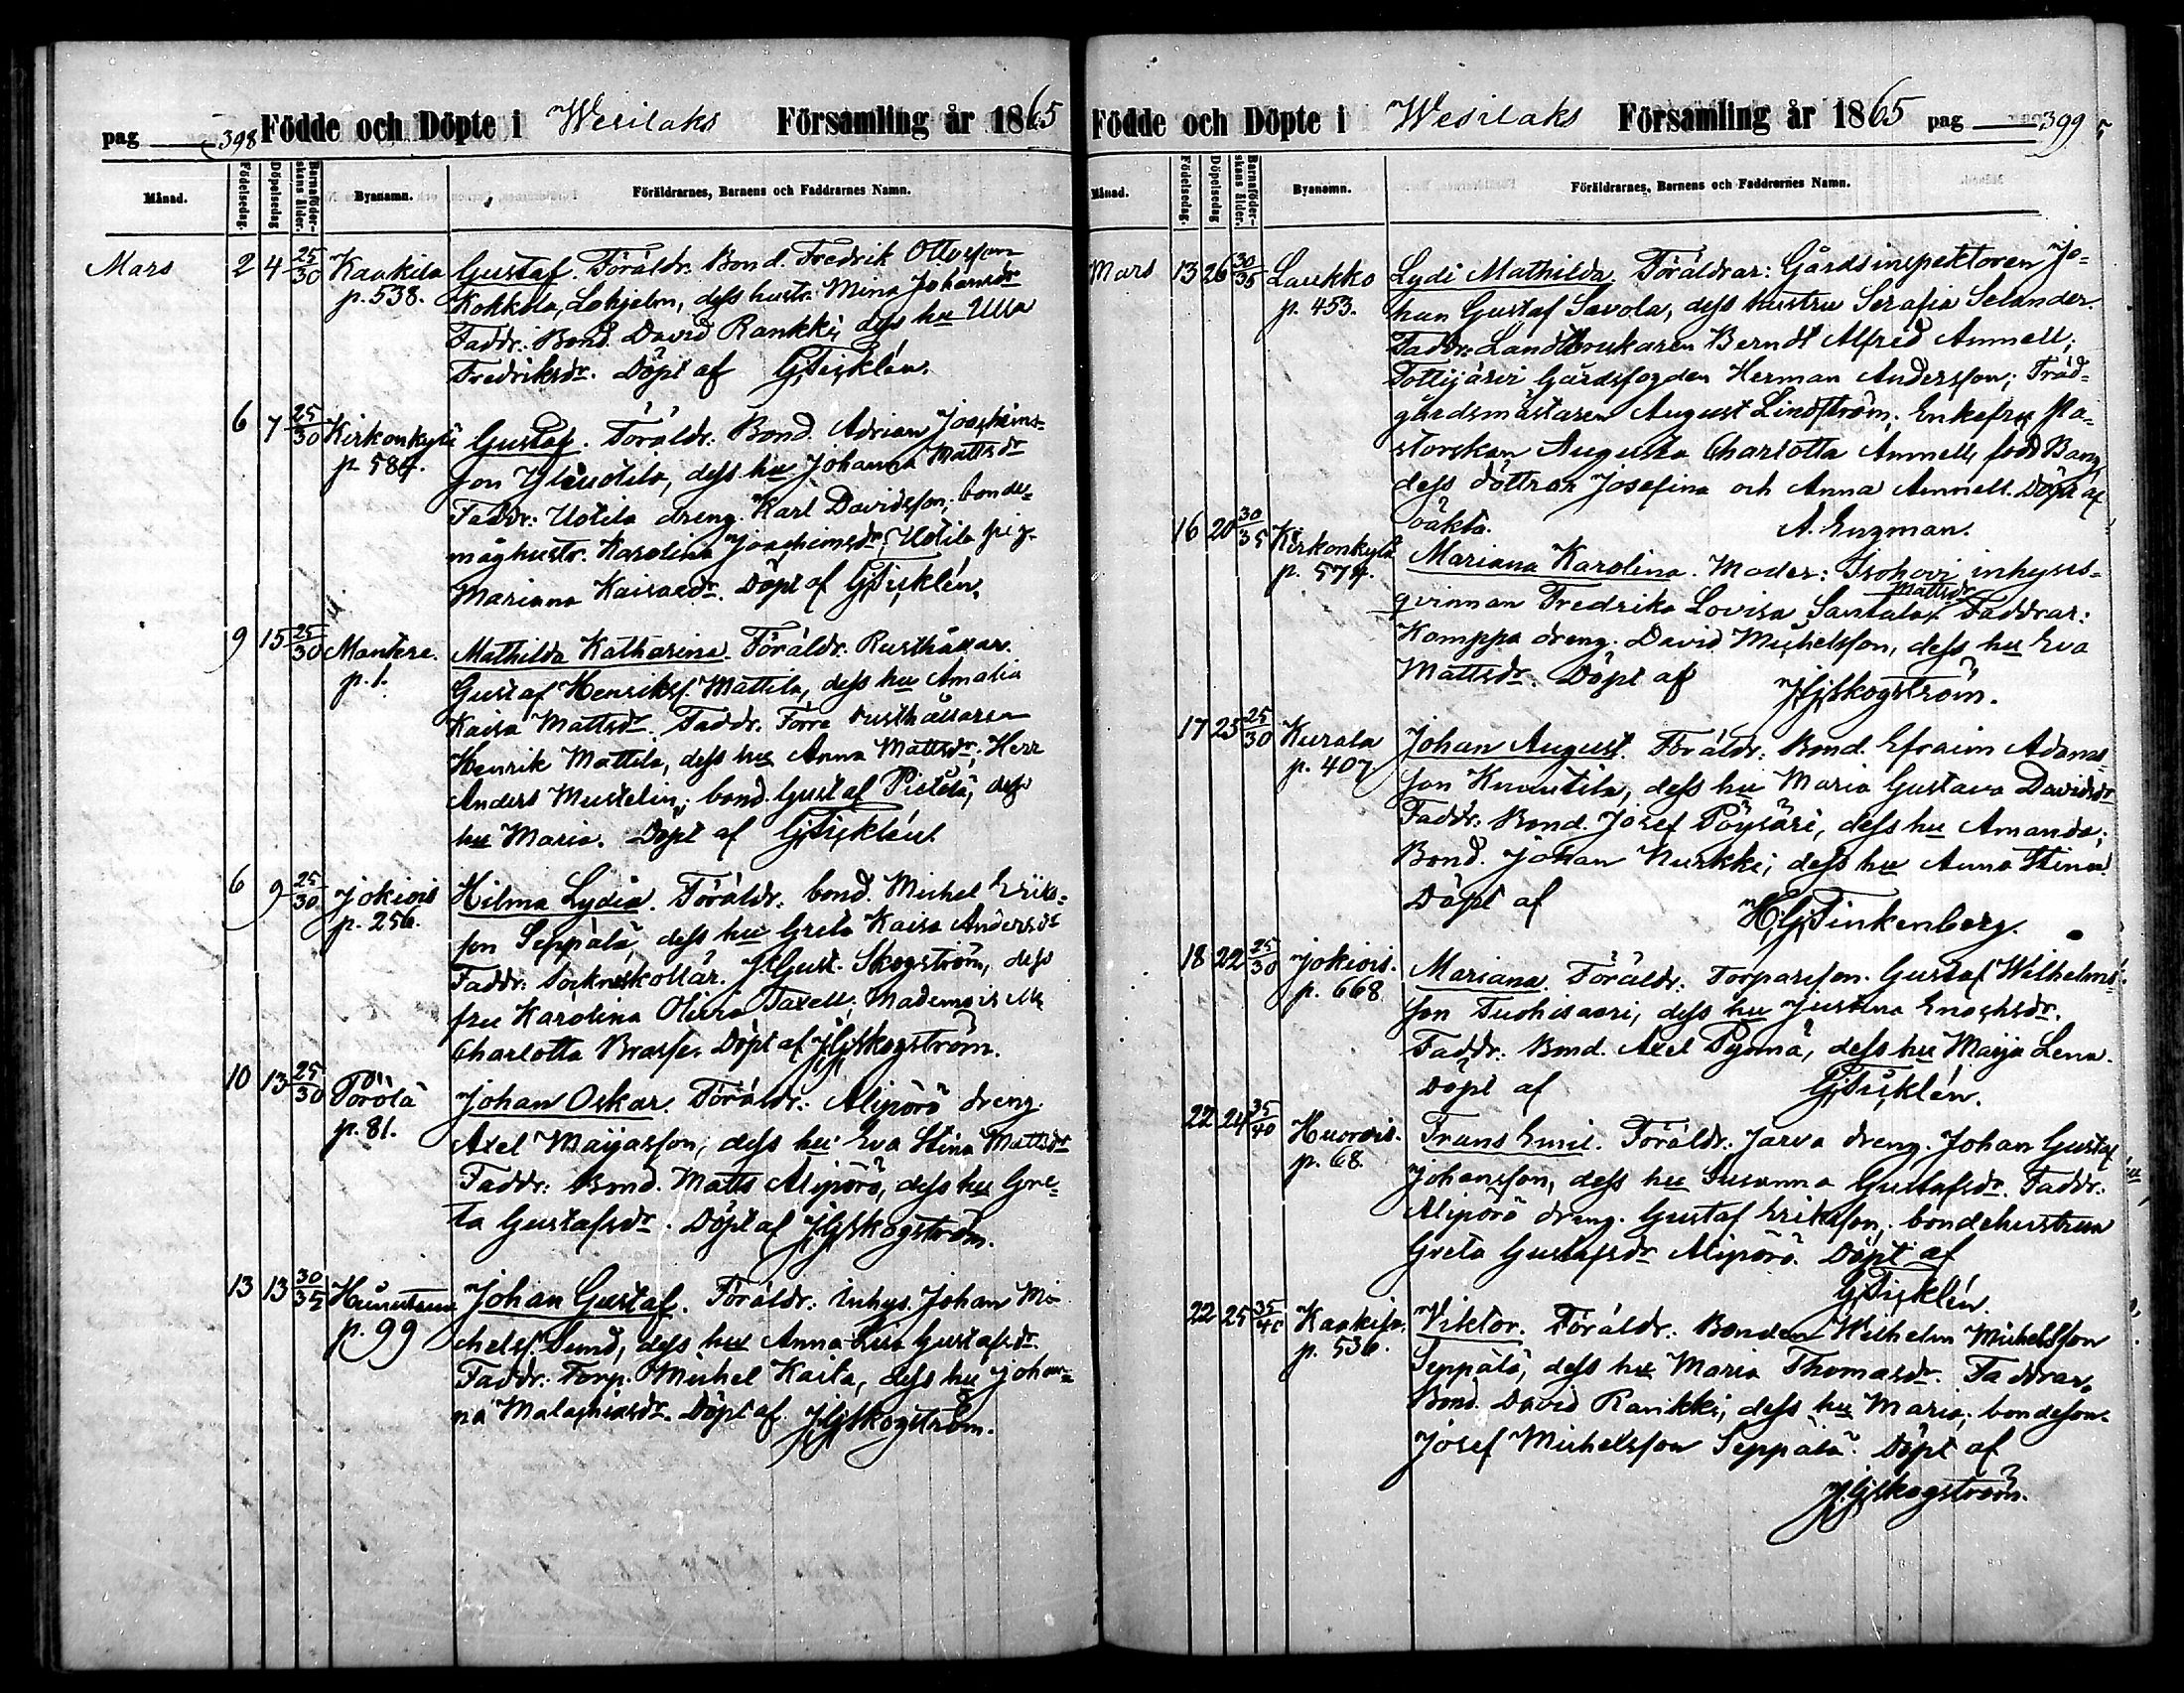 pag 398 Födde och Döpte i Wesilaks Församling år 1865
Månad. Födelsedag. Döpelsedag Barnaföder-skans ålder. Byanamn. Föräldrarnes, Barnens och Faddrarnes Namn.
Mars 2 4 25/30 Kaakila Gustaf. Föräldr. Bond. Fredrik Ottosson
p. 538. Kokkola, Lohjelm, dess hustr. Mina Johansdr
Faddr. Bond. David Rankki, dess hu Ulla
Fredriksdr. Döpt af
6 7 25/30 Kirkonkylä Gustaf. Föräldr. Bond. Adrian Joachims-
p. 584. son dess hu Johanna Mattsdr
Faddr: Uotila dreng. Karl Davidsson, bonde-
måghustr. Karolina Joachimsdr, Uotila pig.
Mariana Kaisasdr. Döpt af
9 15 25/30 Mantere. Mathilda Katharina. Föräldr. Rusthållar.
p. 1. Gustaf Henriks. Mattila, dess hu Amalia
Kaisa Mattsdr. Faddr. Förra rusthållaren
Henrik Mattila, dess hu Anna Mattsdr, Herr
Anders Mustelin, bond. Gustaf dess
hu Maria. Döpt af
6 9 25/30 Jokiois Hilma Lydia. Föräldr. bond. Michel Eriks-
p. 256. son Seppälä, dess hu Greta Kaisa Andersdr
Faddr: Sockneskollär. J. Gust. Skogström, dess
fru Karolina Olivia Taxell,
Charlotta Döpt af JGSkogström.
10 13 25/30 Pörölä Johan Oskar. Föräldr: Alipörö dreng.
p. 81. Axel Maijasson, dess hu Eva Stina Mattsdr
Faddr: Bond. Matts Alipörö, dess hu Gre-
ta Gustafsdr. Döpt af JGSkogström.
13 13 30/35 Johan Gustaf. Föräldr: Inhys. Johan Mi-
p. 99 chelss. Sund, dess hu Anna Lisa Gustafsdr.
Faddr: Torp. Michel Kaita, dess hu Johan-
na Malachiasdr. Döpt af JGSkogström.
Födde och Döpte i Wesilaks Församling år 1865 pag 399
Månad. Födelsedag. Döpelsedag Barnaföder-skans ålder. Byanamn. Föräldrarnes, Barnens och Faddrarnes Namn.
Mars 13 26 30/35 Laukko Lydi Mathilda. Föräldrar: Gårdsinspektoren Jo-
p. 453. han Gustaf Savola, dess hustru Serafia Selander.
Faddr: Landtbrukaren Berndt Alfred Amnell;
Tottijärvi Gårdsfogden Herman Andersson; Träd-
gårdsmästaren August Lindström; Enkefru Pa-
storskan Augusta Charlotta Amnell, född Bang
dess döttrar Josefina och Anna Amnell. Döpt af
äkta. A. Engman.
16 20 30/35 Kirkonkylä Mariana Karolina. Moder: Isohovi inhyses-
p. 574. qvinnan Fredrika Lovisa Mattsdr Santala. Faddrar:
Kamppa dreng. David Michelsson, dess hu Eva
Mattsdr. Döpt af JGSkogström.
17 25 25/30 Kurala Johan August. Föräldr: Bond. Efraim Adams-
p. 407 son Knuutila, dess hu Maria Gustava Davidsdr
Faddr: Bond. Josef Pöysäri, dess hu Amanda;
Bond. Johan Nurkki, dess hu Anna Stina.
Döpt af HGTinkenberg.
18 22 25/30 Jokiois. Mariana. Föräldr. Torpareson. Gustaf Wilhelms-
p. 668 son Tuohisaari, dess hu Justina Enochsdr.
Faddr. Bond. Axel dess hu Maija Lena.
Döpt af
22 24 35/40 Huorois. Frans Emil. Föräldr: Jarva dreng. Johan Gustaf
p. 68. Johansson, dess hu Susanna Gustafsdr. Faddr:
Alipörö dreng. Gustaf Eriksson, bondehustrun
Greta Gustafsdr Alipörö. Döpt af
22 25 35/40 Kaakila. Viktor. Föräldr: Bonden Wilhelm Michelsson
p. 536. Seppälä, dess hu Maria Thomasdr. Faddrar
Bond. David Rankki, dess hu Maria; bondeson.
Josef Michelsson Seppälä. Döpt af
JGSkogström.